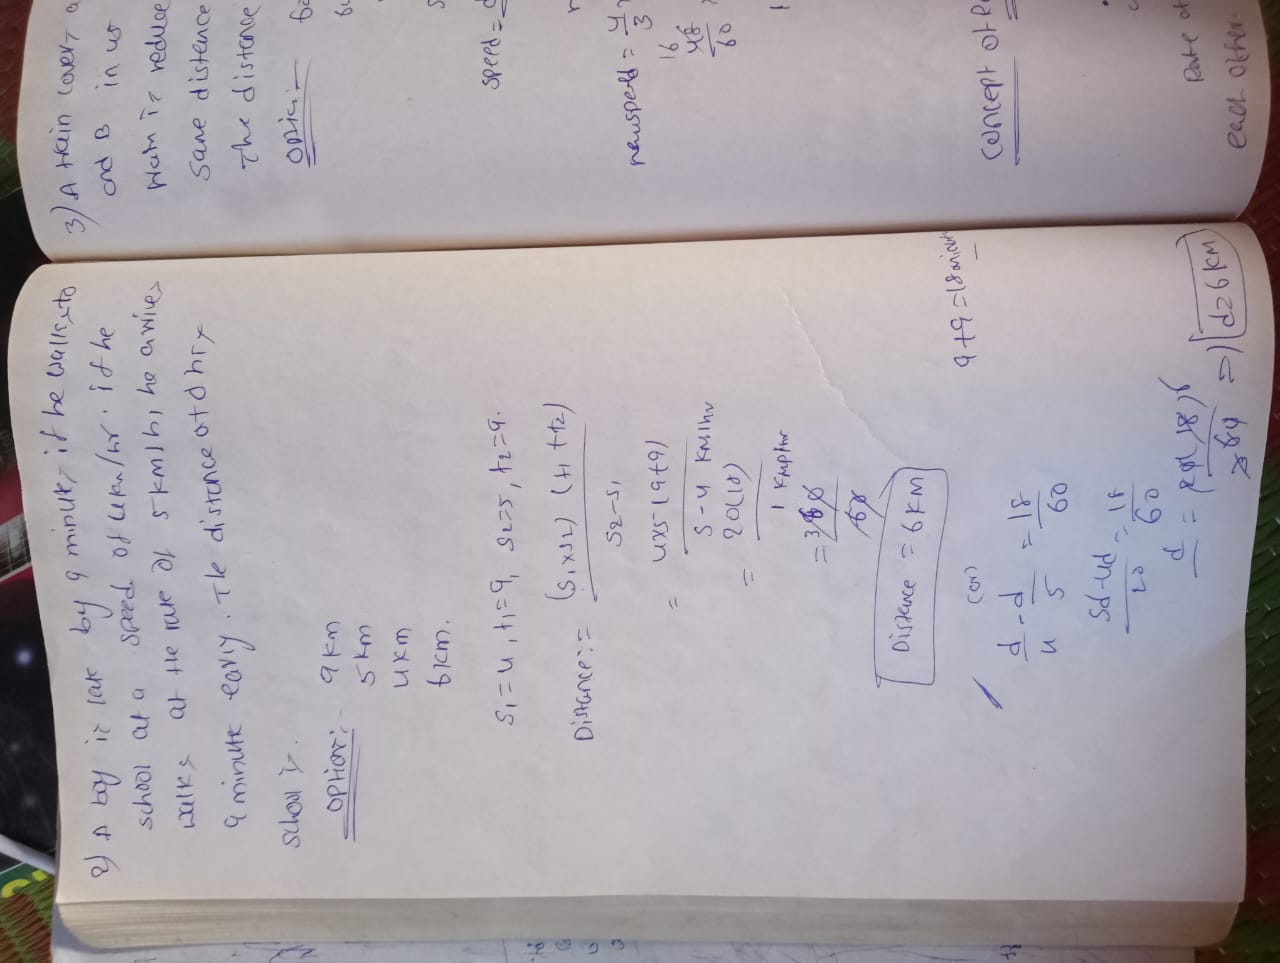 2) A boy is late by 9 minutes if he walks to
school at a speed of 4km/hr. if he
walks at the rate of 5km/hr, he arrives
9 minute early. The distance of his
school is.
Option:- 9km
5km
4km
6km.
S1=4, t1=9, S2=5, t2=9.
Distance:= (S1×S2) (t1+t2)
S2-S1
= 4×5-(9+9)
5-4 km/hr
= 20(18)
1 kmphr
= 360
60
Distance = 6KM
(or)
9+9=18 minute
d/4 - d/5 = 18/60
5d-4d/20 = 18/60
d =
=) d=6KM
3) A train covers
and B in
train is reduce
Same distance
The distance
Option:-
speed =
newspeed = 4/3
16
48
60
concept of
Rate of
each other.